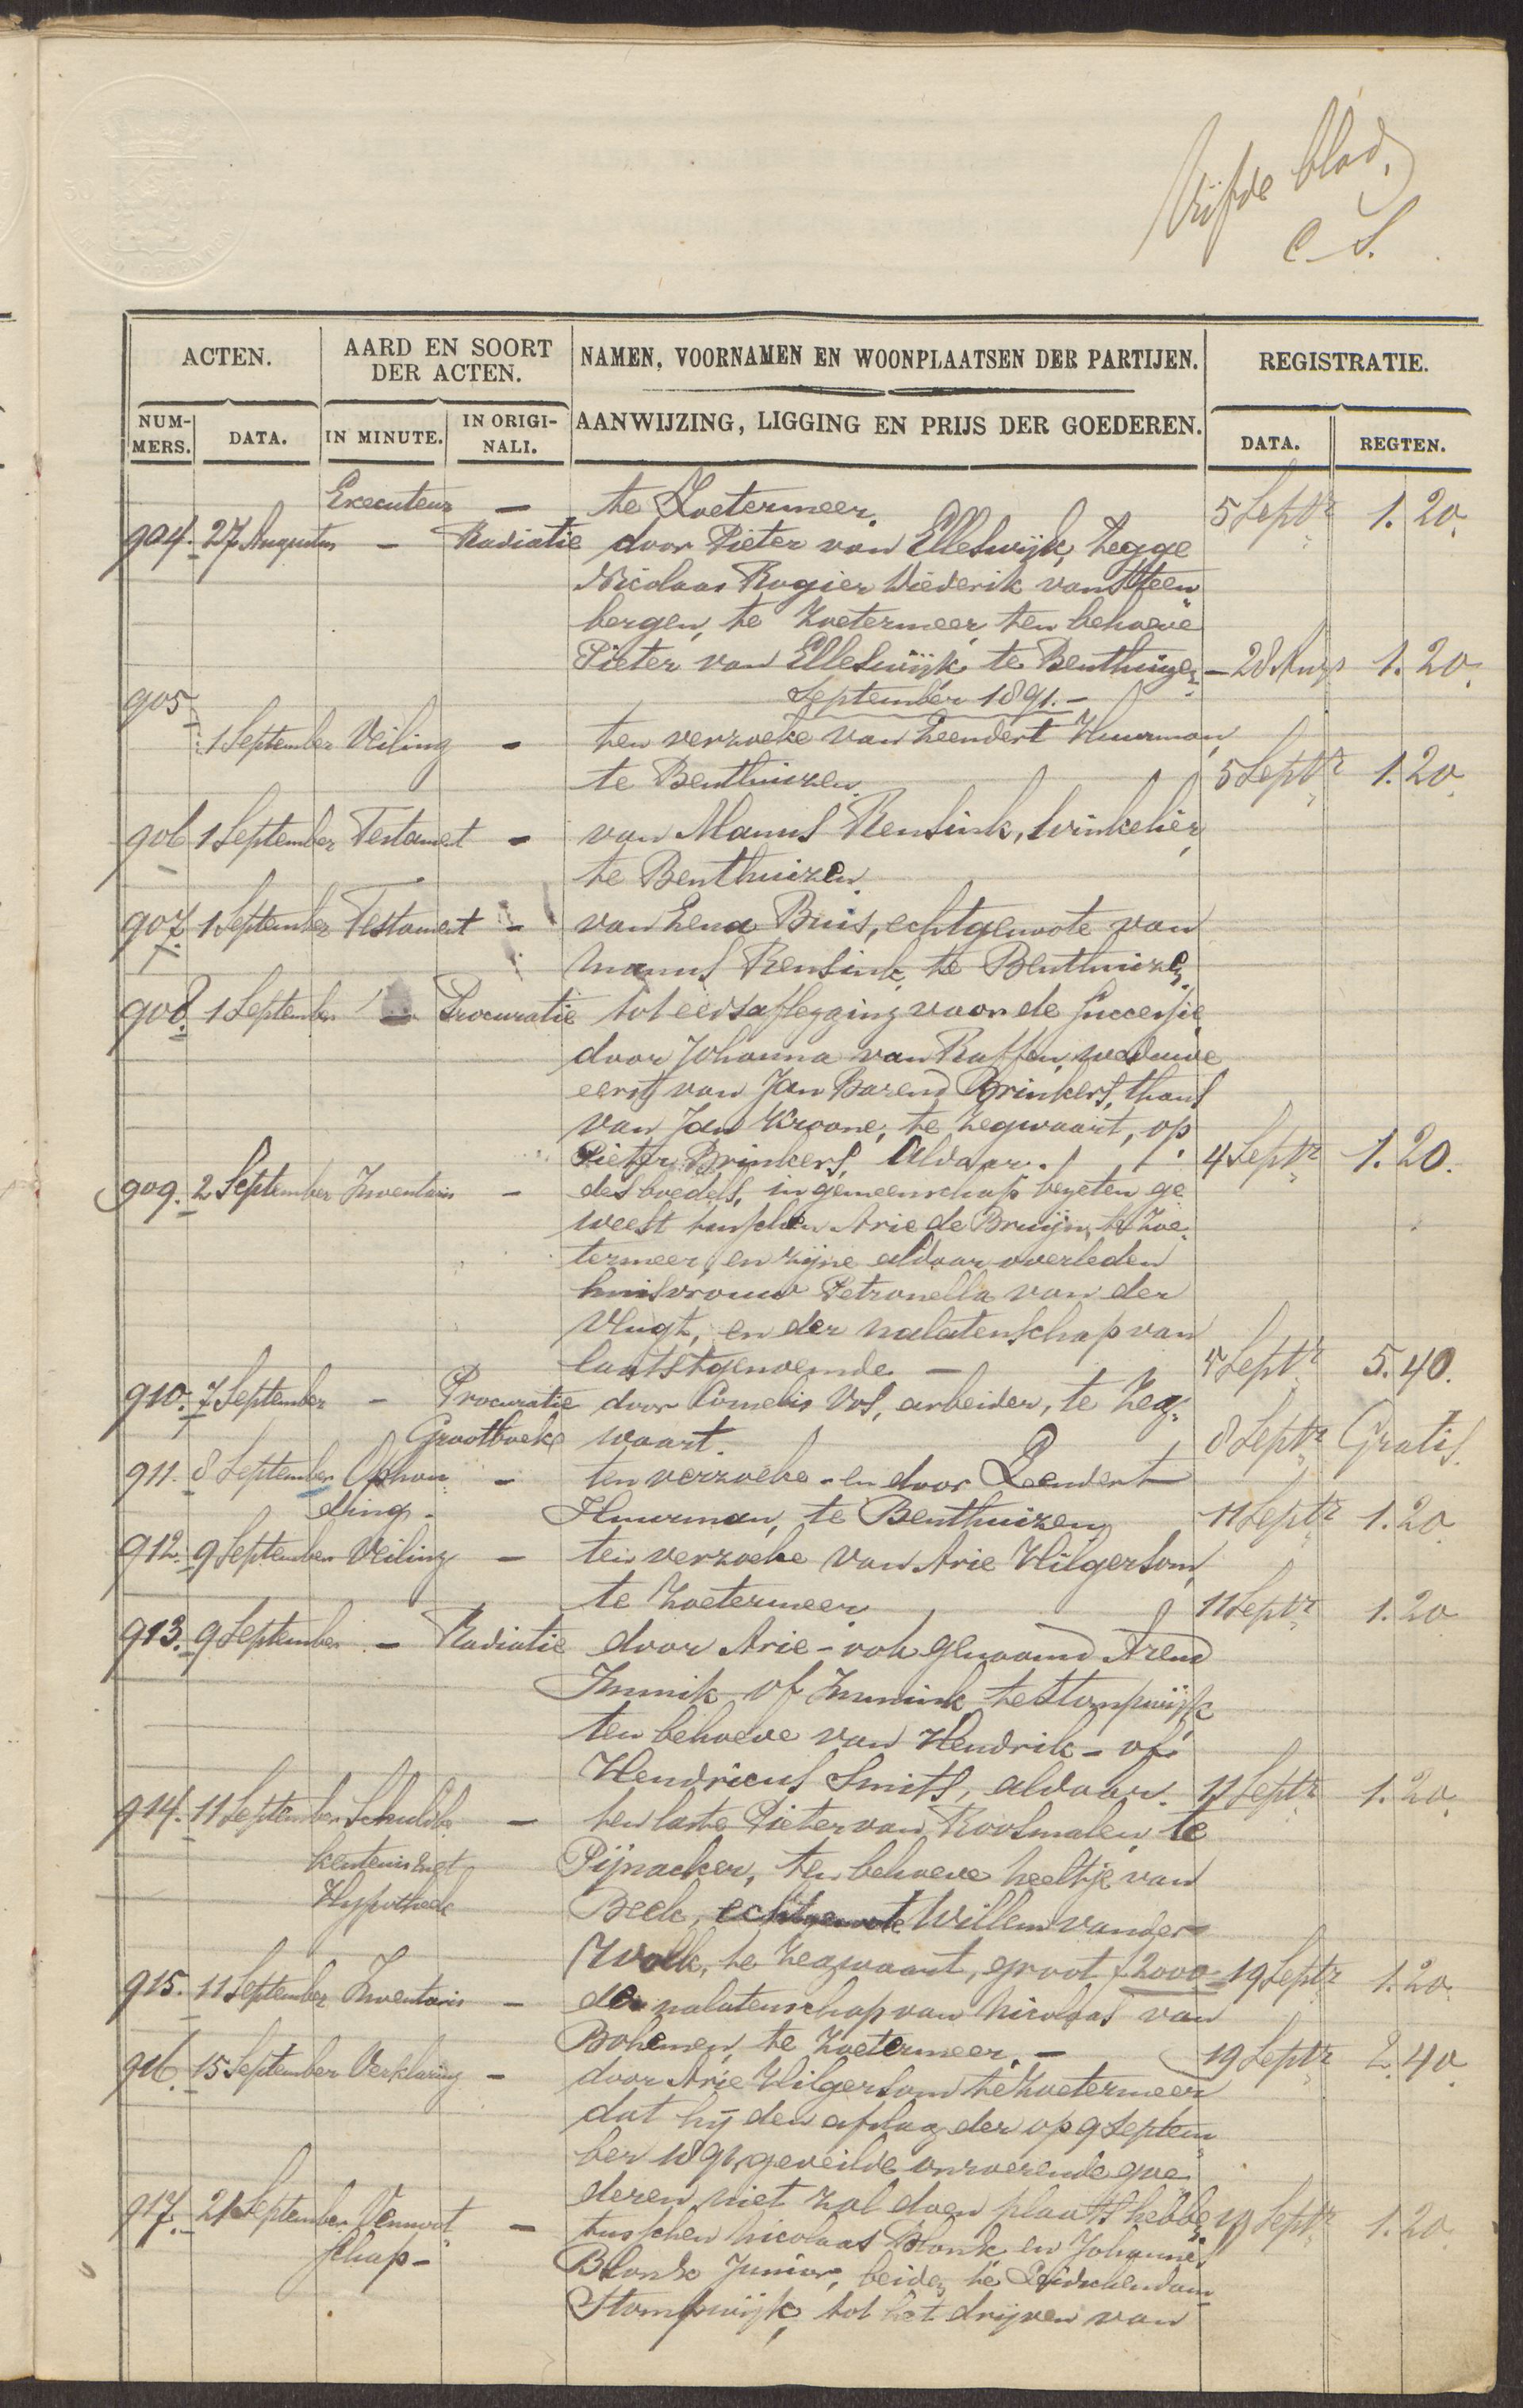 Vijfde blad.
C S.
ACTEN.
AARD EN SOORT DER ACTEN.
NAMEN, VOORNAMEN EN WOONPLAATSEN DER PARTIJEN.
REGISTRATIE.
NUM-MERS.
DATA.
IN MINUTE.
IN ORIGI-NALI.
AANWIJZING, LIGGING EN PRIJS DER GOEDEREN.
DATA.
REGTEN.
Executeur — te Zoetermeer. 5 Septr 1. 20.
904. 27 Augustus — Radiatie door Pieter van Elleswijk, zegge
Nicolaas Rogier Diederik van Steen
bergen, te Zoetermeer, ten behoeve
Pieter van Elleswijk te Benthuizen — 28 Augs 1. 20.
905 September 1891. —
1 September Veiling — ten verzoeke van Leendert Huurman,
te Benthuizen. 5 Septr 1. 20.
906 1 September Testamet — van Manus Rensink, winkelier,
te Benthuizen.
907. 1 September Testament — van Lena Buis, echtgenoote van
Manus Rensink, te Benthuizen.
908. 1 September — Procuratie tot eedsaflegging voor de successie
door Johanna van Raffen, weduwe
eerst van Jan Barend Brinkers, thans
van Jan Kroone, te Zegwaart, op
Pieter Brinkers, aldaar. 4 Septr 1. 20.
909. 2 September Inventaris — des boedels, in gemeenschap bezeten ge
weest tusschen Arie de Bruijn, te Zoe-
termeer, en zijne aldaar overleden
huisvrouw Petronella van der
Vlugt, en der nalatenschap van
laatstgenoemde — 4 Septr 5. 40.
910. 7 September — Procuratie door Cornelis Vos, arbeider, te Zeg-
Grootboeke waart. 8 Septr Gratis.
911. 8 September Ophou — ten verzoeke - en door Leendert
ding. Huurman, te Benthuizen 11 Septr 1. 20
912. 9 September Veiling — ten verzoeke van Arie Hilgersom,
te Zoetermeer 11 Septr 1. 20
913. 9 September — Radiatie door Arie - ook genaamd Arend
Immik of Immink te Stompwijk
ten behoeve van Hendrik - of
Hendricus Smits, aldaar. 11 Septr 1. 20.
914. 11 September Schuldbe — ten laste Pieter van Roosmalen, te
kentenis met Pijnacker, ten behoeve Neeltje van
Hypotheek Beek, echtgenoote Willem van der
Wolk, te Zegwaart, groot f 2000 - 19 Septr 1. 20.
915. 11 September Inventaris — der nalatenschap van Nicolaas van
Bohemen, te Zoetermeer. — 19 Septr 2. 40.
916. 15 September Verklaring — door Arie Hilgersom te Zoetermeer
dat hij den afslag der op 9 Septem
ber 1891 geveilde onroerende goe
deren, niet zal doen plaats hebben 19 Septr 1. 20
917. 21 September Vennoot — tusschen Nicolaas Blonk en Johannes
schap — Blonk Junior, beiden te Leidschendam
Stompwijk, tot het drijven van